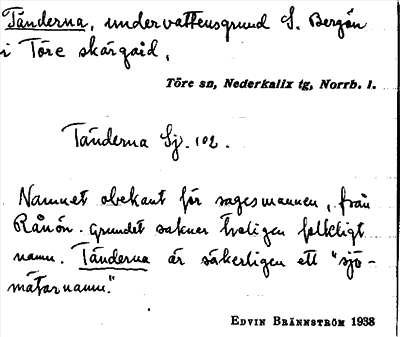 Tänderna, undervattensgrund S. Bergön
i Töre skärgård.
Töre sn, Nederkalix tg, Norrb. l.
Tänderna Sj. 102.
Namnet obekant för sagesmannen, från
Rånön. Grundet saknar troligen folkligt
namn. Tänderna är säkerligen ett "sjö-
mätarnamn."
EDVIN BRÄNNSTRÖM 1938